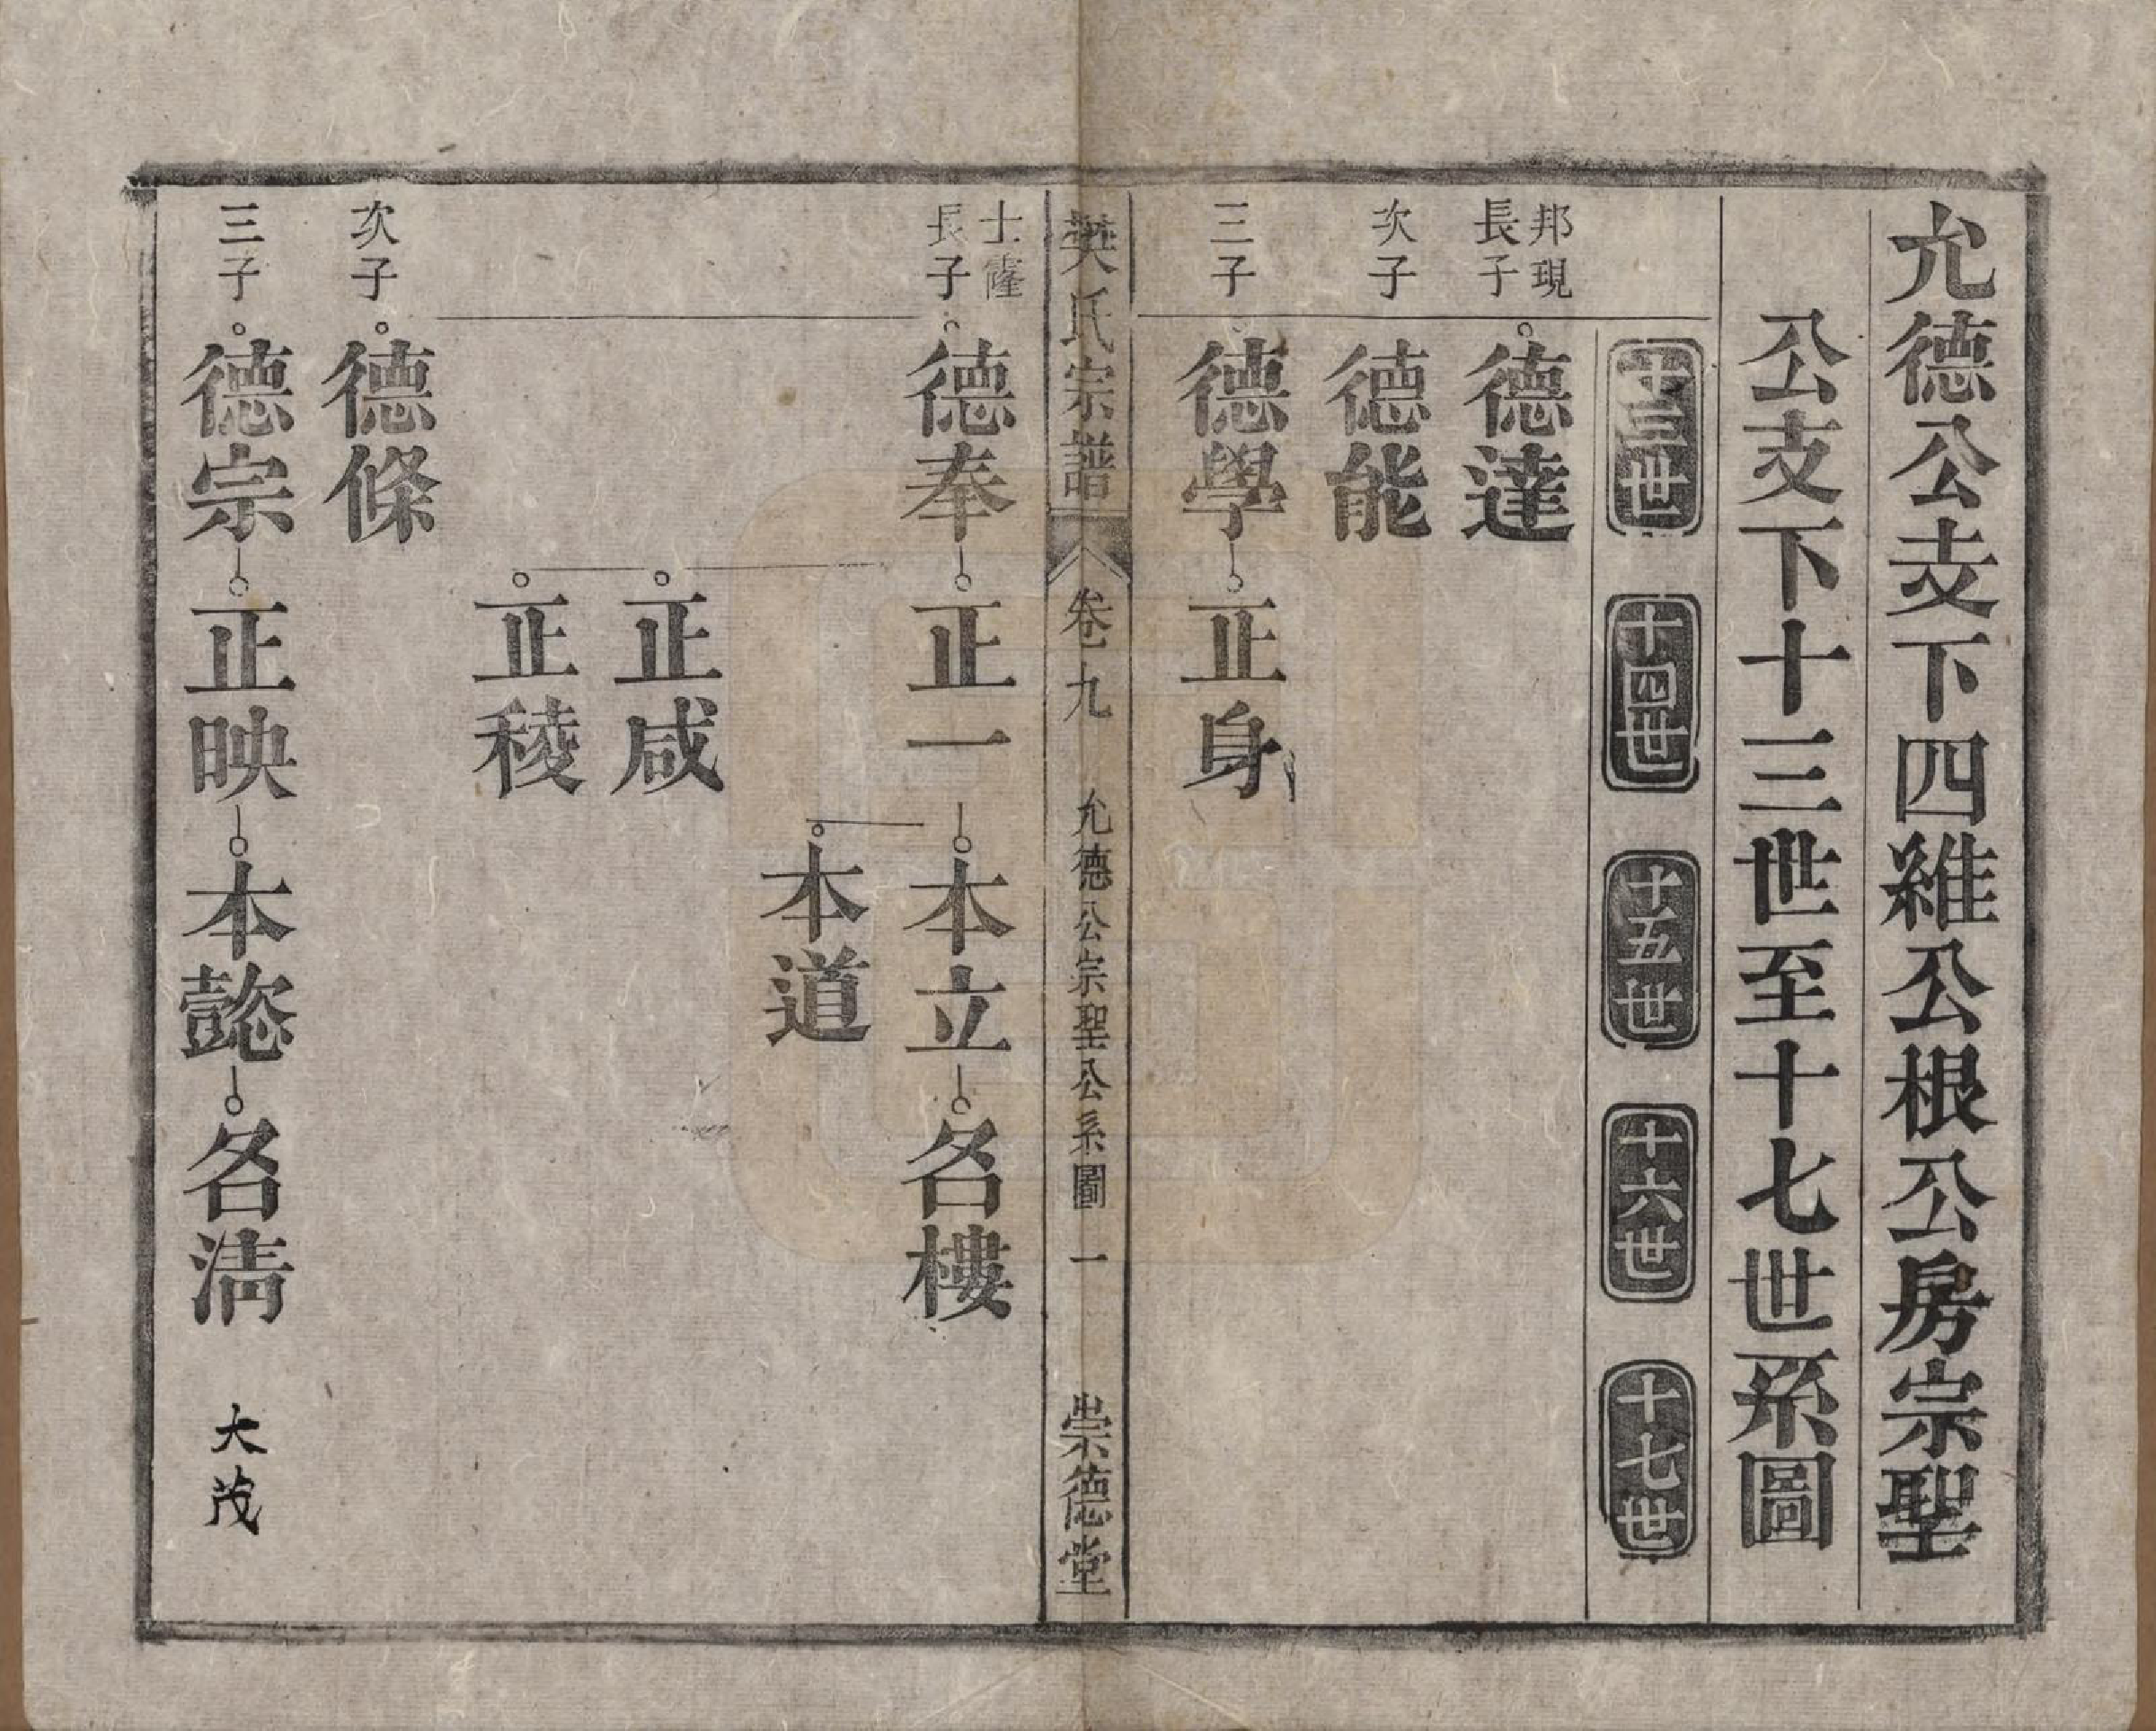 允德公支下四維公根公房宗聖
公支下十三世至十七世系圖
十三世 十四世 十五世 十六世 十七世
邦現
長子 德達
次子 德能
三子 德學 正身
樊氏宗譜 卷九 允德公宗聖公系圖 一 崇德堂
士隆
長子 德奉 正一 本立 名樓
本道
正咸
正稜
次子 德條
三子 德宗 正映 本懿 名清 大茂